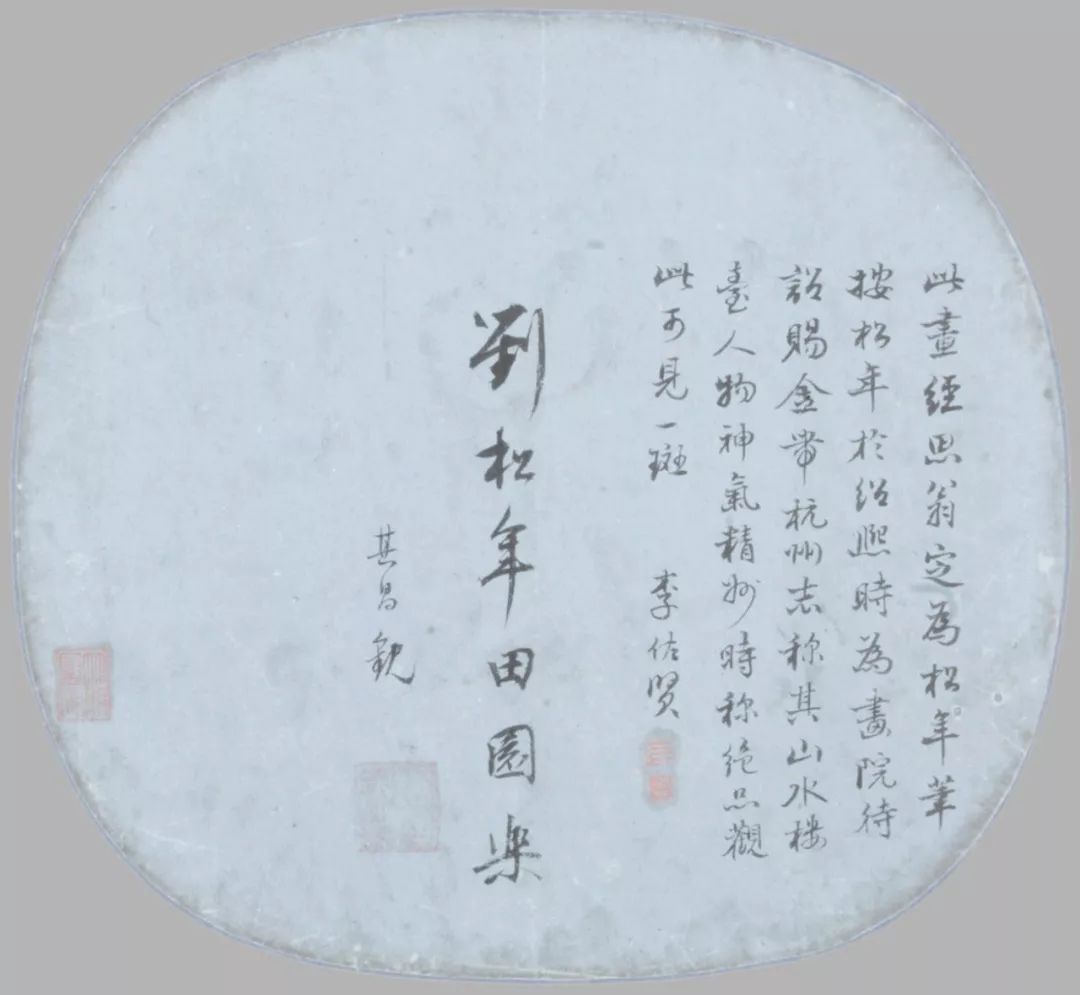 此畫經思翁定為松年筆
按松年於紹熙時為畫院待
詔賜金帶杭州志称其山水樓
臺人物神氣精妙時称絶品觀
此可見一斑
李佐賢
劉松年田園樂
其昌観